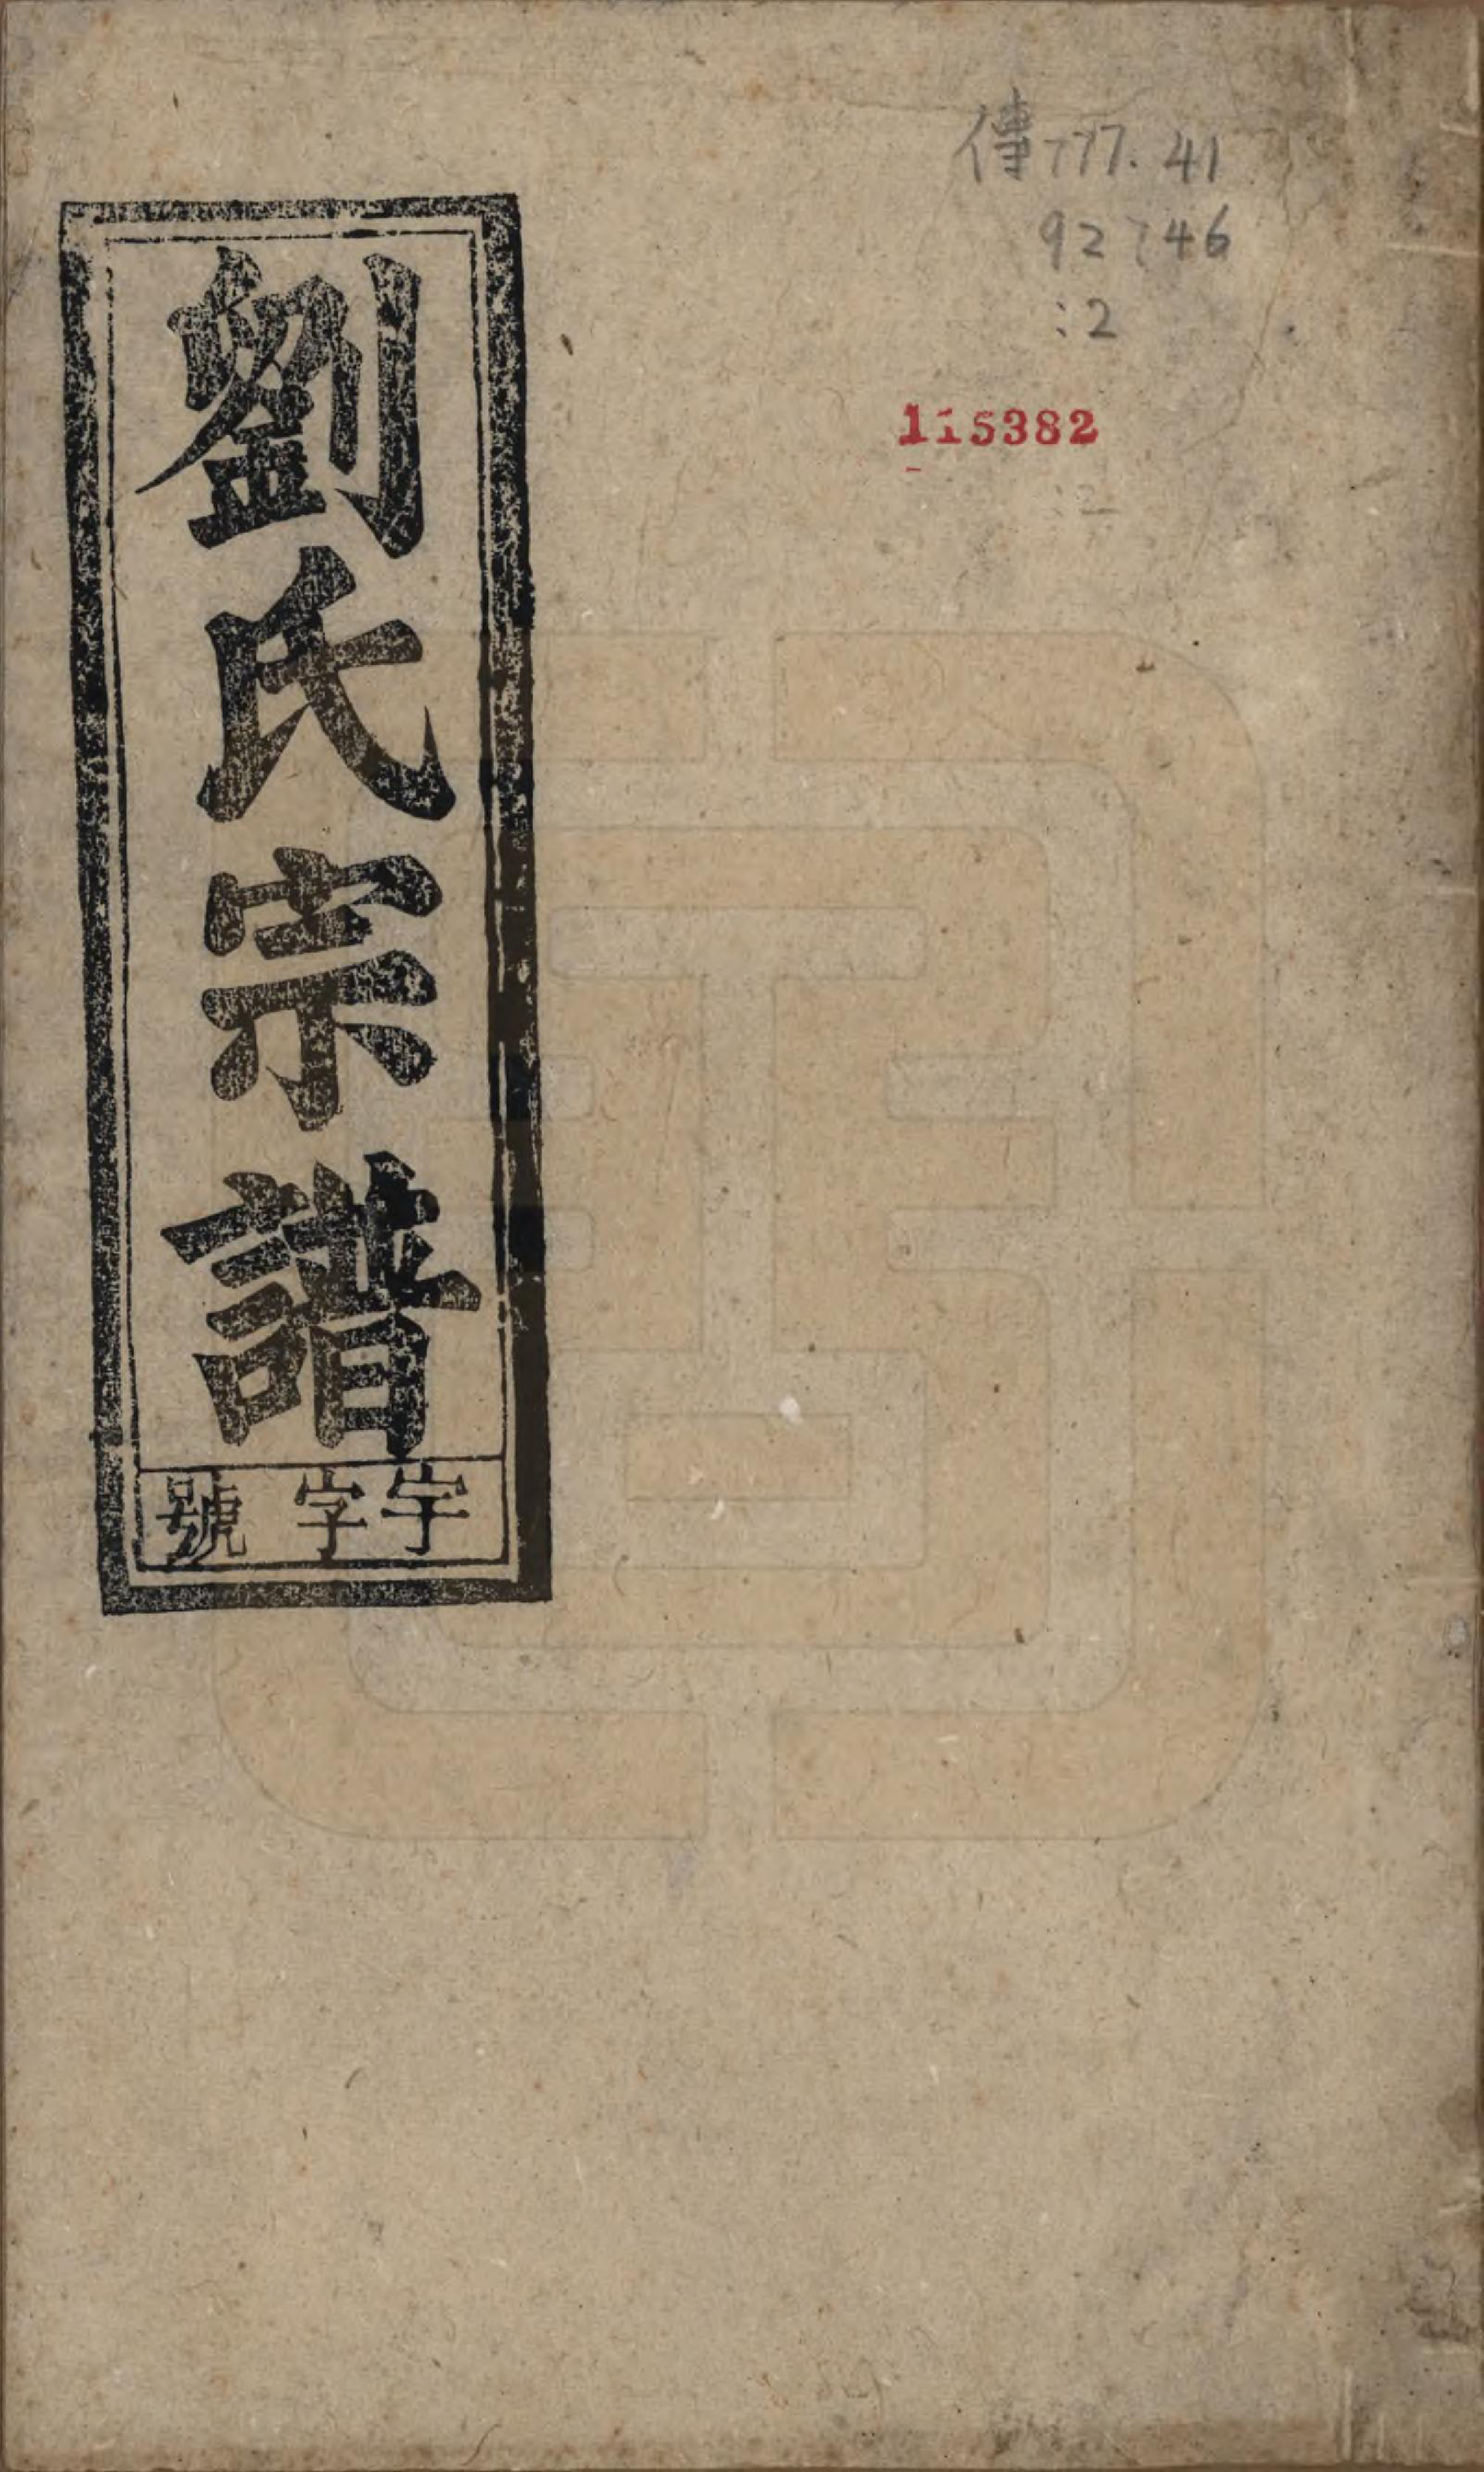 傳777.41
92746
:2
115382
:2
劉氏宗譜
宇字號